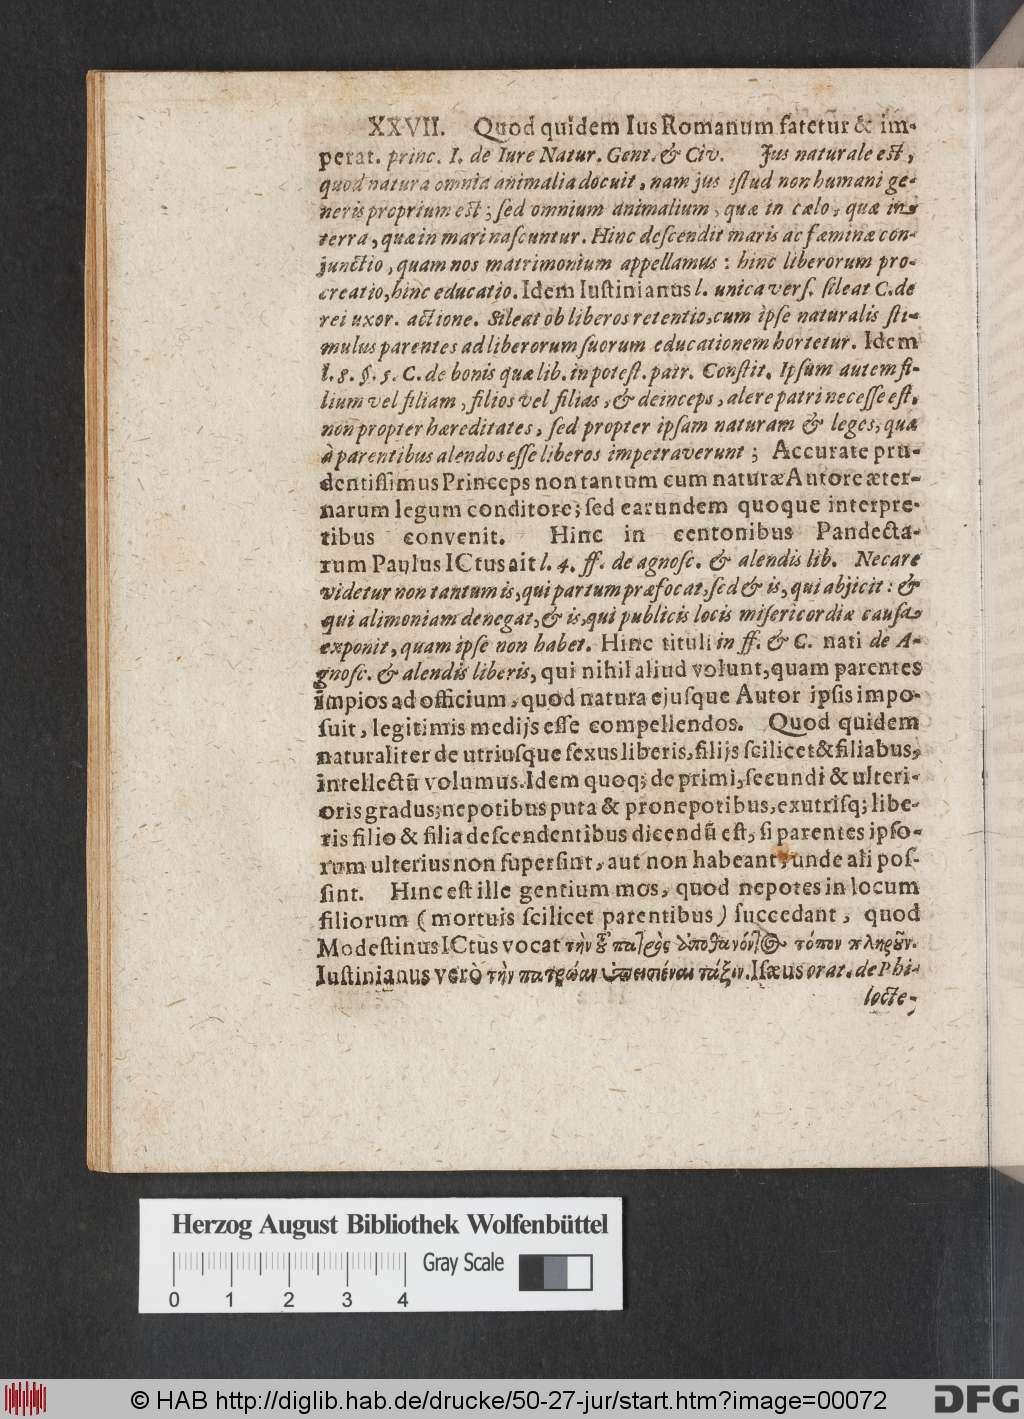 XXVII. Quod quidem Ius Romanum fatetur & im-
perat. princ. I. de Iure Natur. Gent. & Civ. Jus naturale est,
quod natura omnia animalia docuit, nam jus istud non humani ge-
neris proprium est; sed omnium animalium, quæ in cælo, quæ in
terra, quæ in mari nascuntur. Hinc descendit maris ac fæminæ con-
junctio, quam nos matrimonium appellamus: hinc liberorum pro-
creatio, hinc educatio. Idem Iustinianus l. unica vers. sileat C. de
rei uxor. actione. Sileat ob liberos retentio, cum ipse naturalis sti-
mulus parentes ad liberorum suorum educationem hortetur. Idem
l. 8. §. 5. C. de bonis quæ lib. in potest. patr. Constit. Ipsum autem fi-
lium vel filiam, filios vel filias, & deinceps, alere patri necesse est,
non propter hæreditates, sed propter ipsam naturam & leges, quæ
à parentibus alendos esse liberos impetraverunt; Accurate pru-
dentissimus Princeps non tantum cum naturæ Autore æter-
narum legum conditore; sed earundem quoque interpre-
tibus convenit. Hinc in centonibus Pandecta-
rum Paulus ICtus ait l. 4. ff. de agnosc. & alendis lib. Necare
videtur non tantum is, qui partum præfocat, sed & is, qui abjicit: &
qui alimoniam denegat, & is, qui publicis locis misericordiæ causa
exponit, quam ipse non habet. Hinc tituli in ff. & C. nati de A-
gnosc. & alendis liberis, qui nihil aliud volunt, quam parentes
impios ad officium, quod natura ejusque Autor ipsis impo-
suit, legitimis medijs esse compellendos. Quod quidem
naturaliter de utriusque sexus liberis, filijs scilicet & filiabus,
intellectũ volumus. Idem quoq; de primi, secundi & ulteri-
oris gradus; nepotibus puta & pronepotibus, ex utrisq; libe-
ris filio & filia descendentibus dicendũ est, si parentes ipso-
rum ulterius non supersint, aut non habeant, unde ali pos-
sint. Hinc est ille gentium mos, quod nepotes in locum
filiorum (mortuis scilicet parentibus) succedant, quod
Modestinus ICtus vocat τὴν τοῦ πατρὸς ἀποθανόντος τόπον πληροῦν.
Iustinianus verò τὴν πατρώαν ὑπεισιέναι τάξιν. Isæus orat. de Phi-
locte-
Herzog August Bibliothek Wolfenbüttel
Gray Scale
0 1 2 3 4
© HAB http://diglib.hab.de/drucke/50-27-jur/start.htm?image=00072
DFG